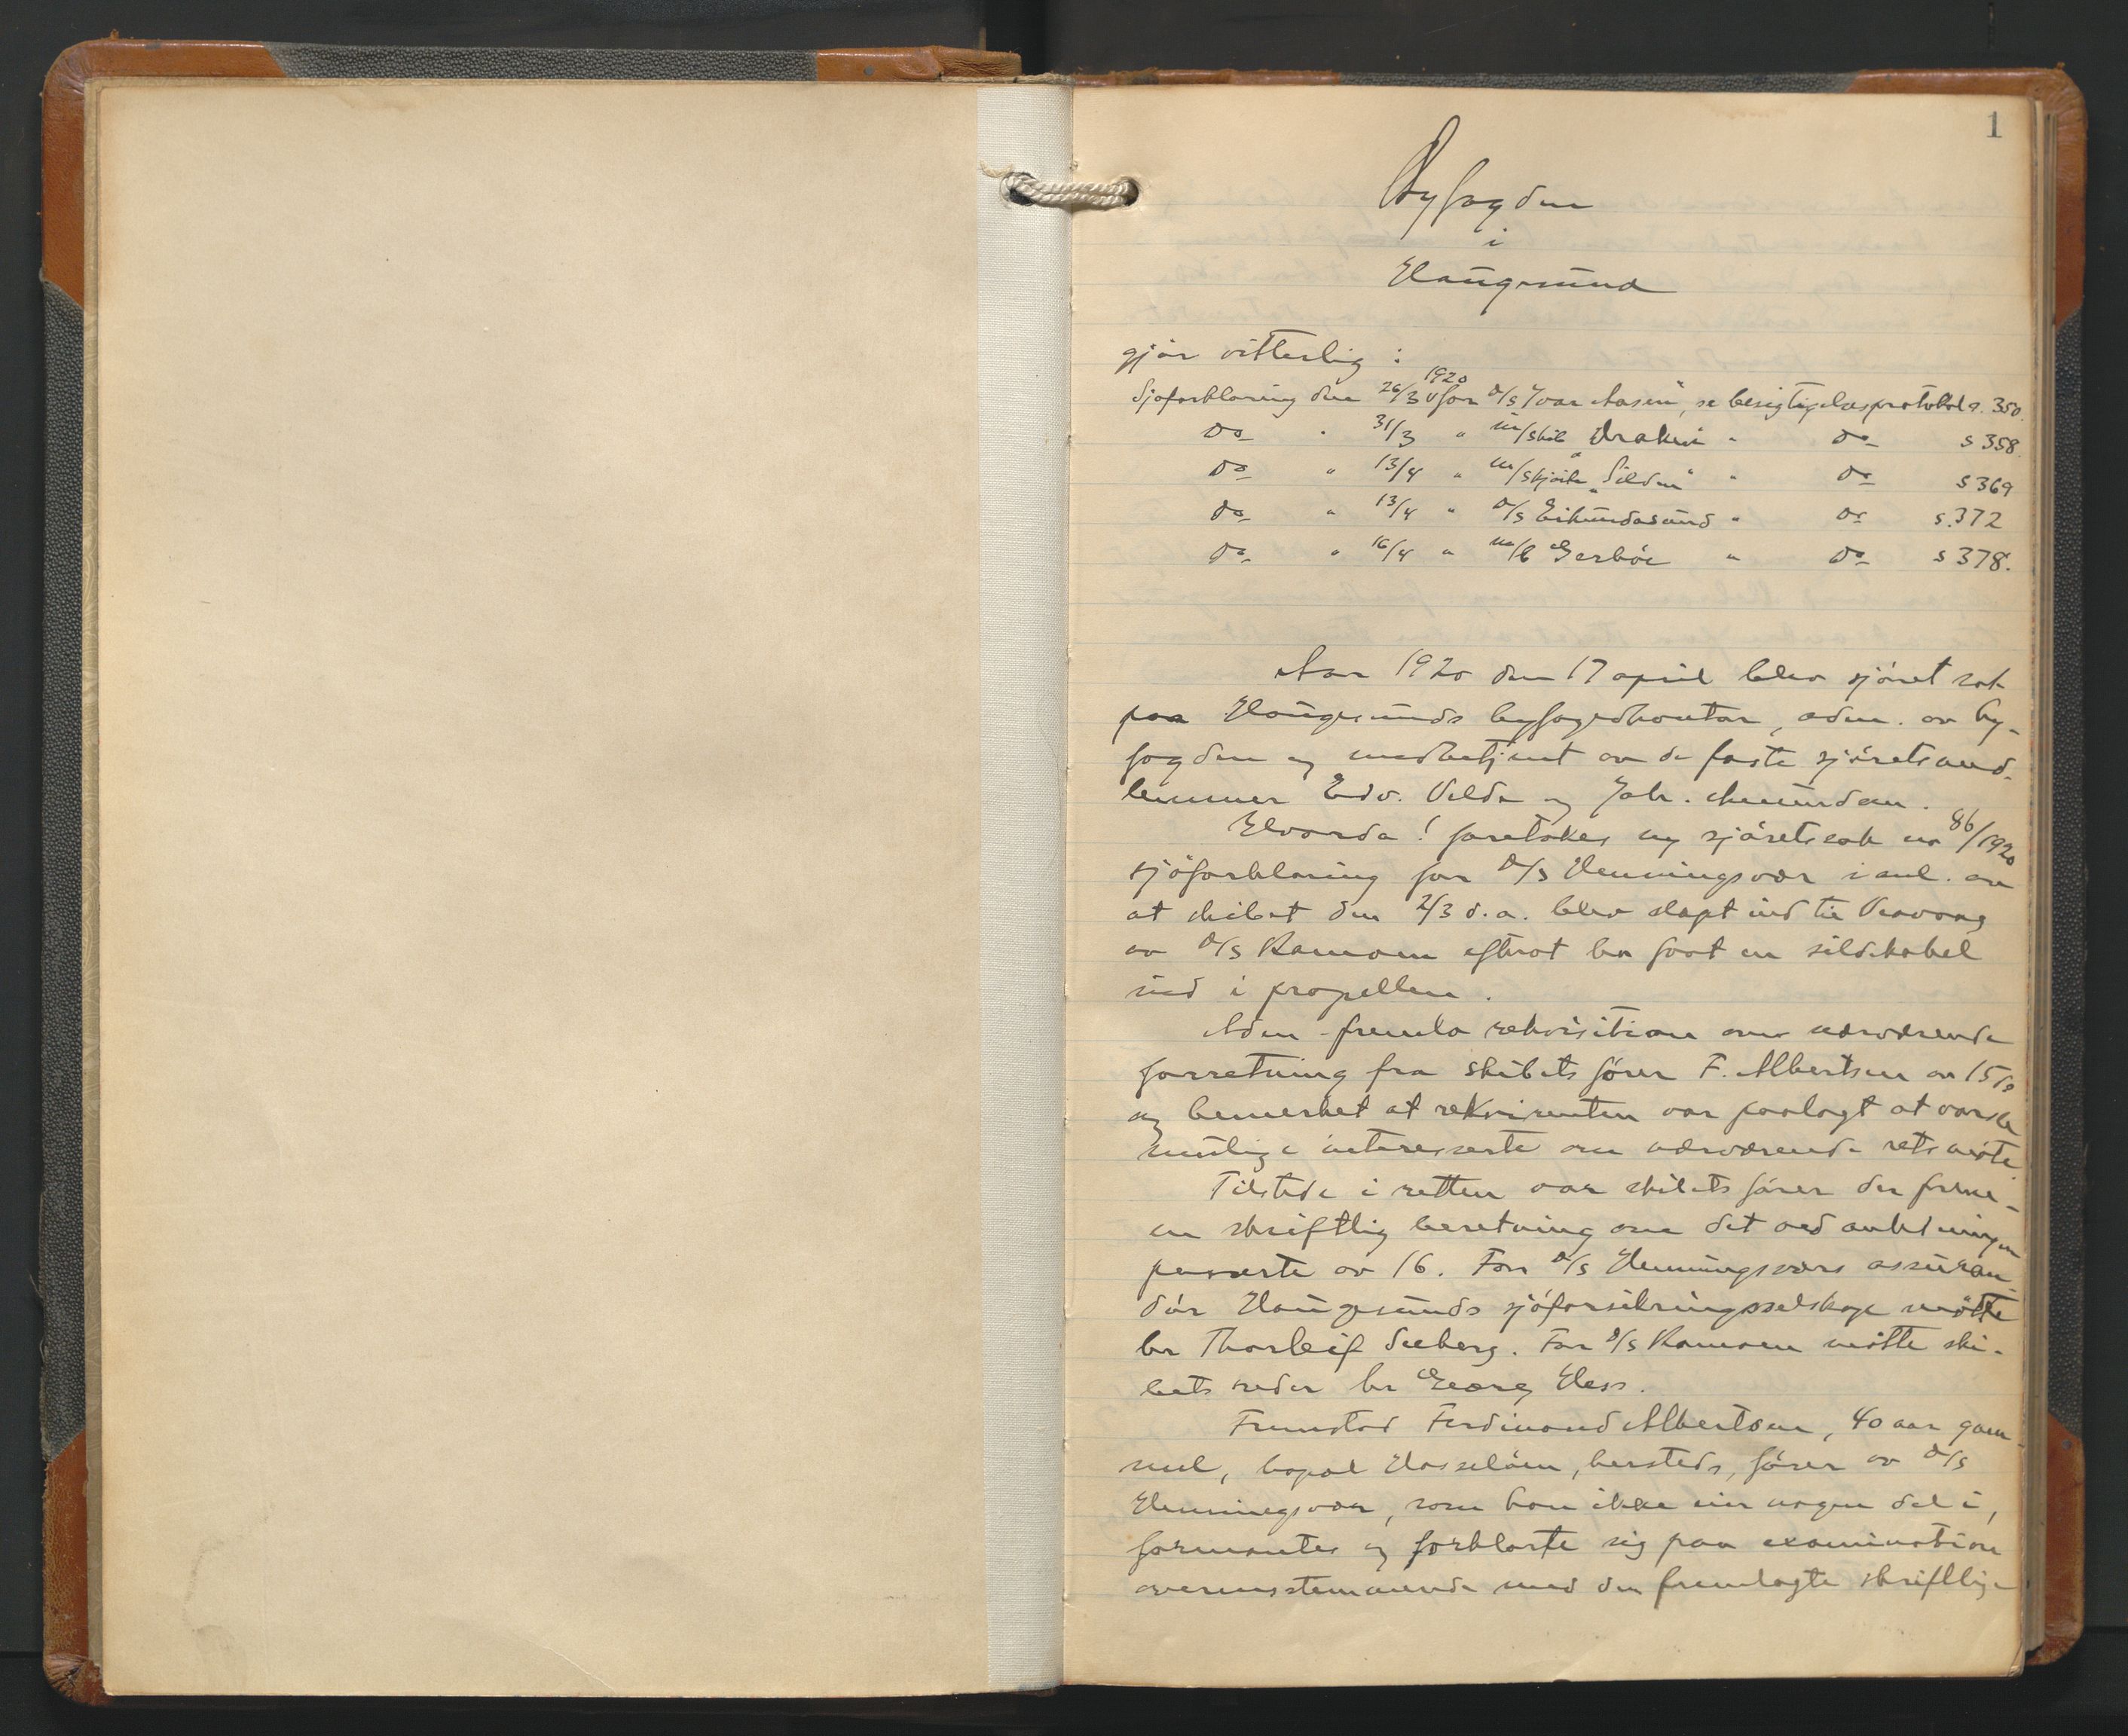 1
Byfogden
i
Haugesund
gjør vitterlig :
Sjøforklaring den 26/3 1920 for D/S "Ivar Aasen", se besigtigelsesprotokol s. 350.
Do " 31/3 " m/skib Draken " Do s 358.
Do " 13/4 " m/skjøite "Silden" " Do s 369
Do " 13/4 " D/S Eikundasund " Do s. 372
Do " 16/4 " m/k Gerhöe " Do s 378.
Aar 1920 den 17 april blev sjöret sat
paa Haugesunds byfogedkontor, adm. av by-
fogden og medbetjent av de faste sjöretsmed-
lemmer Edv. Velde og Joh. Amundsen.
Hvorda! foretokes ny sjöretssak nr 86/1920
sjöforklaring for D/S Henningsvær i anl. av
at skibet den 2/3 d.a. blev slæpt ind til Veavaag
av D/S Ramoen efterat ha faat en sildekabel
ind i propellen.
Adm. fremla rekvisition om nærværende
forretning fra skibets förer F. Albertsen av 15 ds
og bemerket at rekvirenten var paalagt at varsle
mulige interesserte om nærværende retsmöte.
Tilstede i retten var skibets förer der frem-
en skriftlig beretning om det ved anledningen
passerte av 16. For D/S Henningsværs assuran-
dör Haugesunds sjöforsikringsselskap mötte
hr Thorleif Seeberg. For D/S Ramoen mötte ski-
bets reder hr Georg Hess.
Fremstod Ferdinand Albertsen, 40 aar gam-
mel, bopæl Hasselöen, hersteds, förer av D/S
Henningsvær, som han ikke eier nogen del i,
formantes og forklarte sig paa examination
overensstemmende med den fremlagte skriftlige